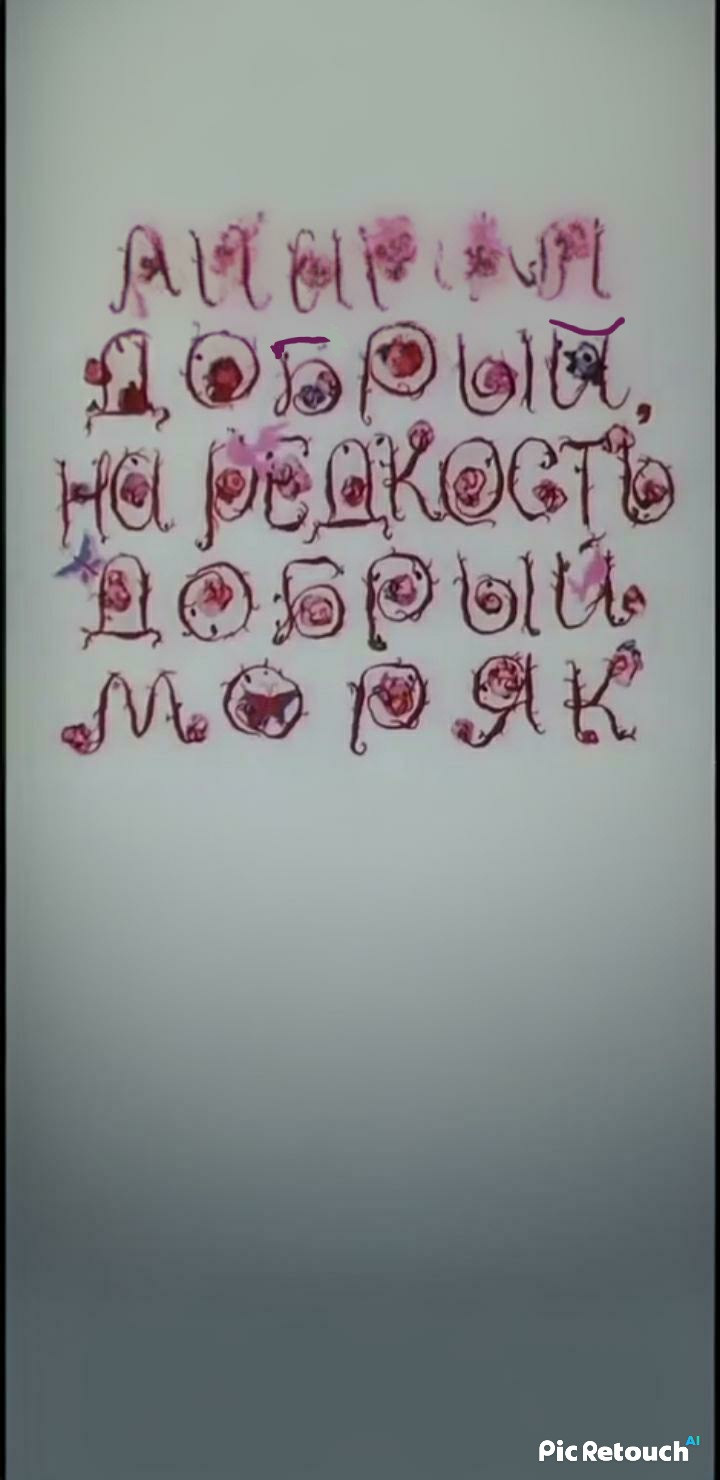 ДОБРЫЙ,
НА РЕДКОСТЬ
ДОБРЫЙ
МОРЯК
Pic Retouch AI